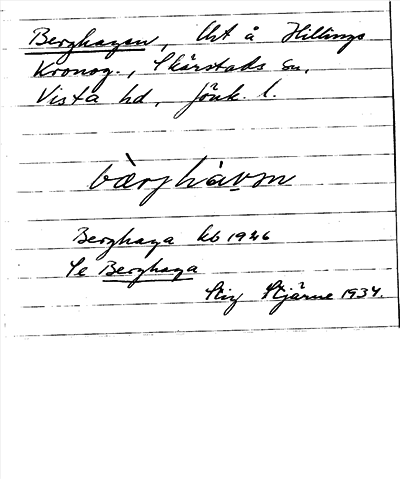 Berghagen, Lht å Hillings
Kronog., Skärstads sn,
Vista hd, Jönk. l.
bærjhàvm
Berghaga kb 1926
Se Berghaga
Stig Stjärne 1934.